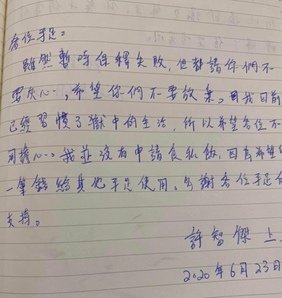 各位手足:
雖然暫時保釋失敗,但都請你們不
要灰心…,希望你們不要放棄。因我目前
已經習慣了獄中的生活,所以希望各位不
用擔心…我並沒有申請食私飯,因為希望
一筆錢給其他手足使用。多謝各位手足
支持。
許智傑 上
2020年6月23日